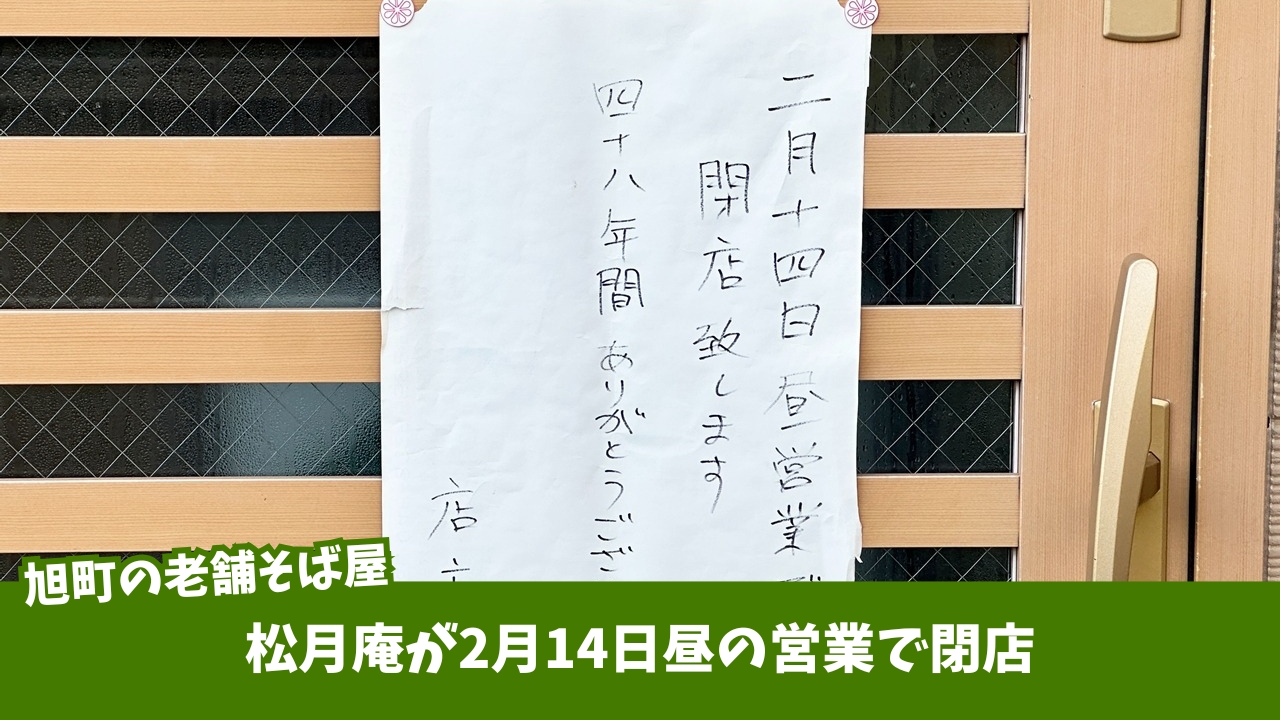 二月十四日昼営業
閉店致します
四十八年間ありがとうござ
店
旭町の老舗そば屋
松月庵が2月14日昼の営業で閉店